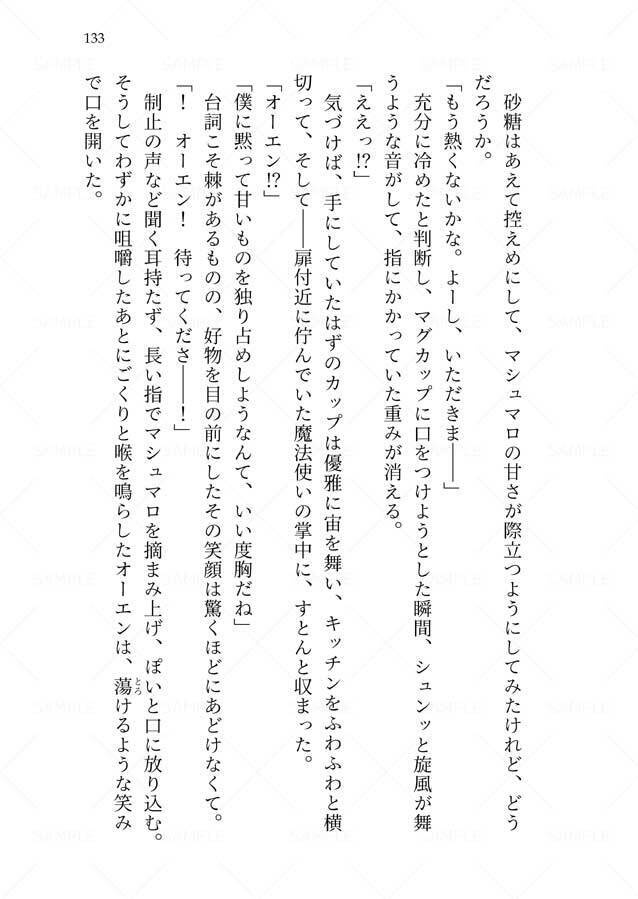 133
砂糖はあえて控えめにして、マシュマロの甘さが際立つようにしてみたけれど、どう
だろうか。
「もう熱くないかな。よーし、いただきま――」
充分に冷めたと判断し、マグカップに口をつけようとした瞬間、シュンッと旋風が舞
うような音がして、指にかかっていた重みが消える。
「ええっ!?」
気づけば、手にしていたはずのカップは優雅に宙を舞い、キッチンをふわふわと横
切って、そして――扉付近に佇んでいた魔法使いの掌中に、すとんと収まった。
「オーエン!?」
「僕に黙って甘いものを独り占めしようなんて、いい度胸だね」
台詞こそ棘があるものの、好物を目の前にしたその笑顔は驚くほどにあどけなくて。
「！　オーエン！　待ってくださ――！」
制止の声など聞く耳持たず、長い指でマシュマロを摘まみ上げ、ぽいと口に放り込む。
そうしてわずかに咀嚼したあとにごくりと喉を鳴らしたオーエンは、蕩とろけるような笑み
で口を開いた。
SAMPLE